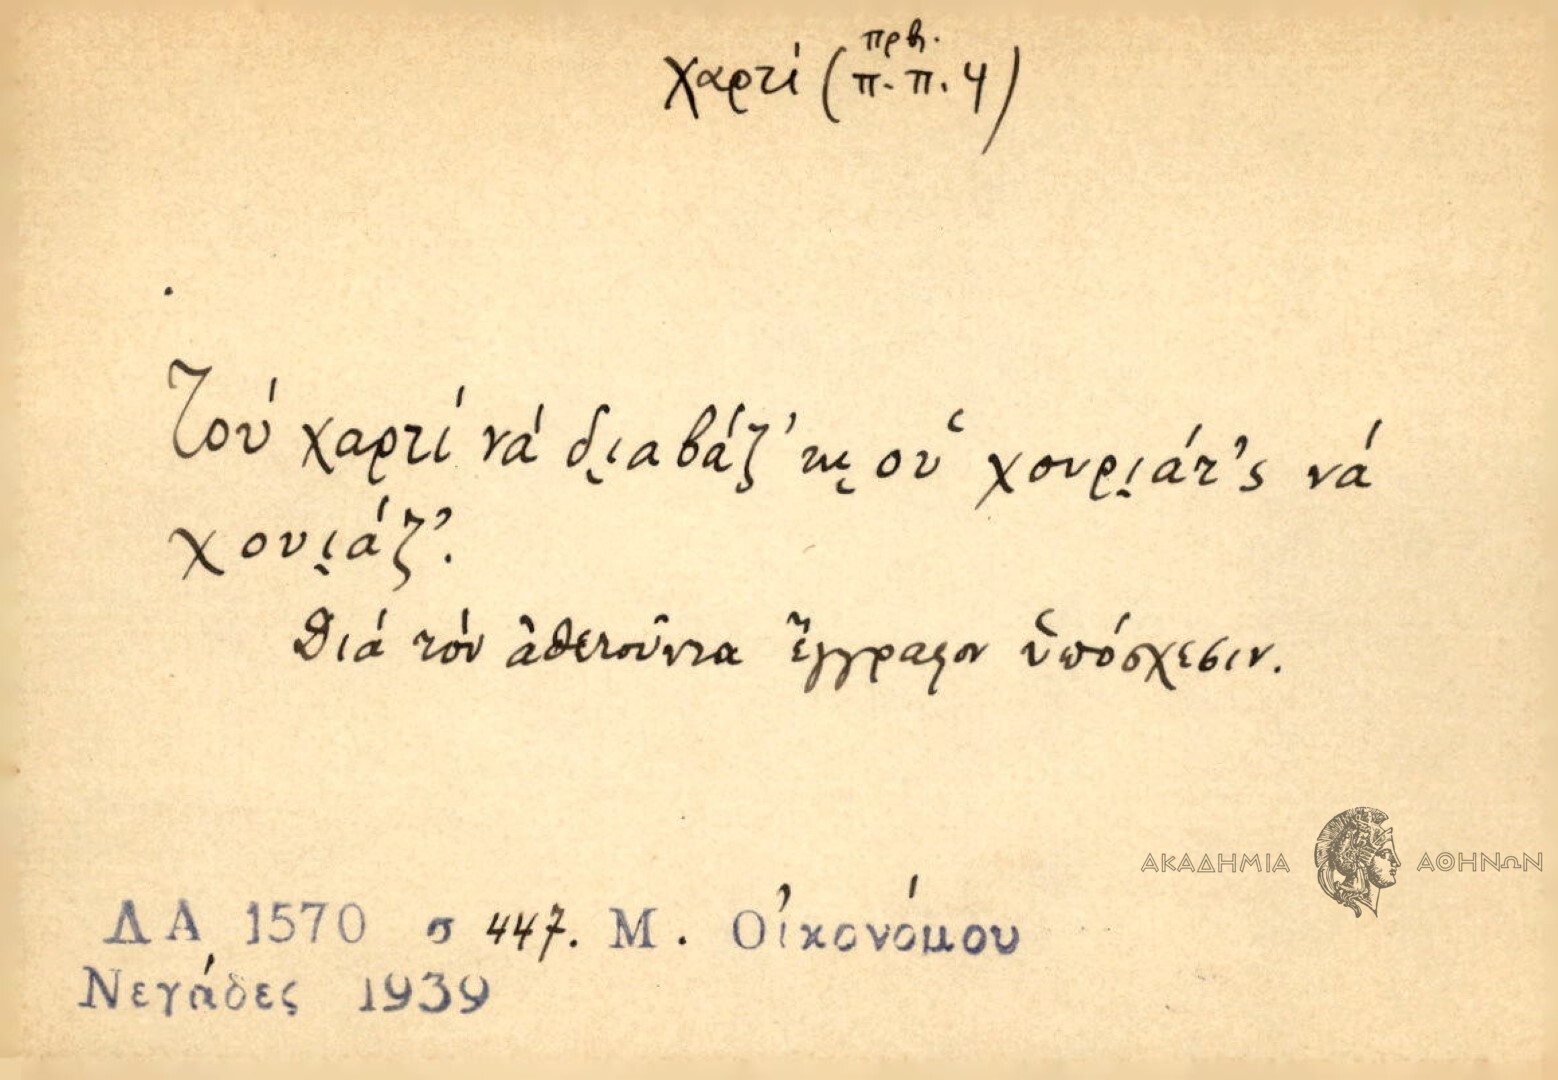 χαρτί (π.π. 4)
πρβ.
Τού χαρτί νά δι̯αβάζ' κι̯ οὑ χουρι̯άτ'ς νά
χουι̯άζ'.
Διά τόν ἀθετοῦντα ἔγγραφον ὑπόσχεσιν.
ΑΚΑΔΗΜΙΑ ΑΘΗΝΩΝ
ΛΑ 1570 σ 447. Μ. Οἰκονόμου
Νεγάδες 1939